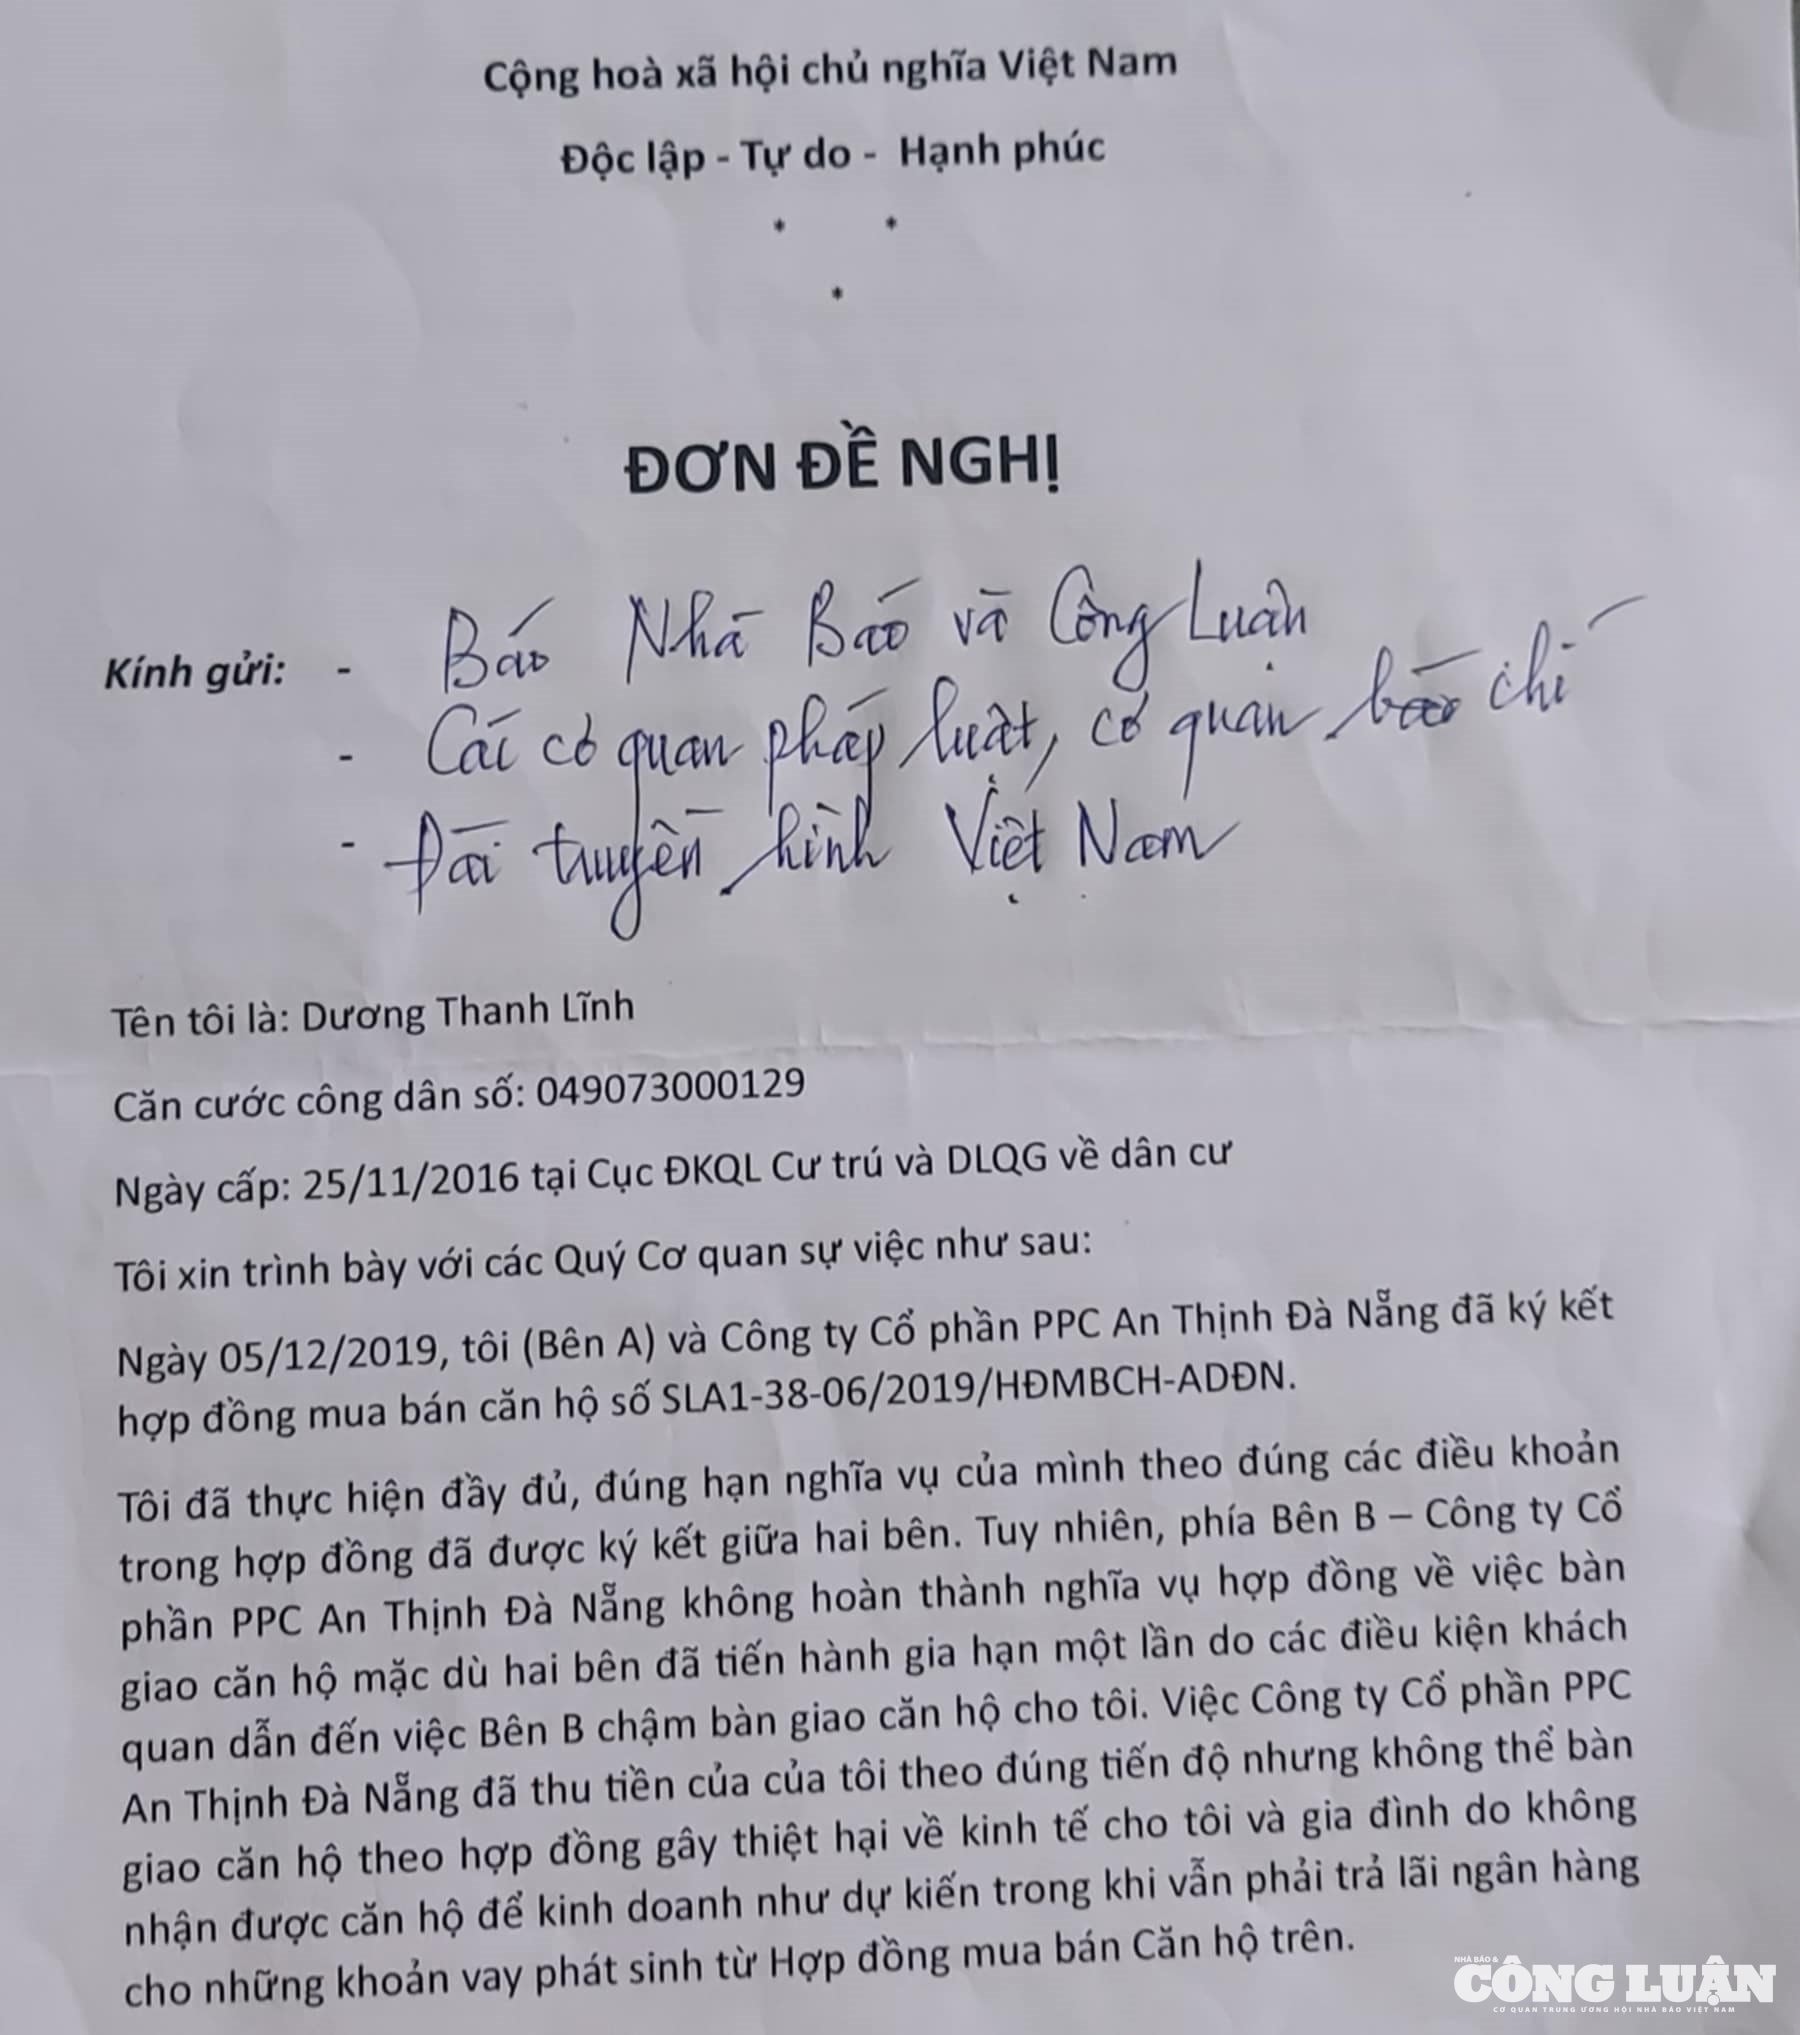 Cộng hoà xã hội chủ nghĩa Việt Nam
Độc lập - Tự do - Hạnh phúc
* *
*
ĐƠN ĐỀ NGHỊ
Kính gửi: - Báo Nhà Báo và Công Luận
- Các cơ quan pháp luật, cơ quan báo chí
- Đài truyền hình Việt Nam
Tên tôi là: Dương Thanh Lĩnh
Căn cước công dân số: 049073000129
Ngày cấp: 25/11/2016 tại Cục ĐKQL Cư trú và DLQG về dân cư
Tôi xin trình bày với các Quý Cơ quan sự việc như sau:
Ngày 05/12/2019, tôi (Bên A) và Công ty Cổ phần PPC An Thịnh Đà Nẵng đã ký kết
hợp đồng mua bán căn hộ số SLA1-38-06/2019/HĐMBCH-ADĐN.
Tôi đã thực hiện đầy đủ, đúng hạn nghĩa vụ của mình theo đúng các điều khoản
trong hợp đồng đã được ký kết giữa hai bên. Tuy nhiên, phía Bên B – Công ty Cổ
phần PPC An Thịnh Đà Nẵng không hoàn thành nghĩa vụ hợp đồng về việc bàn
giao căn hộ mặc dù hai bên đã tiến hành gia hạn một lần do các điều kiện khách
quan dẫn đến việc Bên B chậm bàn giao căn hộ cho tôi. Việc Công ty Cổ phần PPC
An Thịnh Đà Nẵng đã thu tiền của của tôi theo đúng tiến độ nhưng không thể bàn
giao căn hộ theo hợp đồng gây thiệt hại về kinh tế cho tôi và gia đình do không
nhận được căn hộ để kinh doanh như dự kiến trong khi vẫn phải trả lãi ngân hàng
cho những khoản vay phát sinh từ Hợp đồng mua bán Căn hộ trên.
NHÀ BÁO &
CÔNG LUẬN
CƠ QUAN TRUNG ƯƠNG HỘI NHÀ BÁO VIỆT NAM